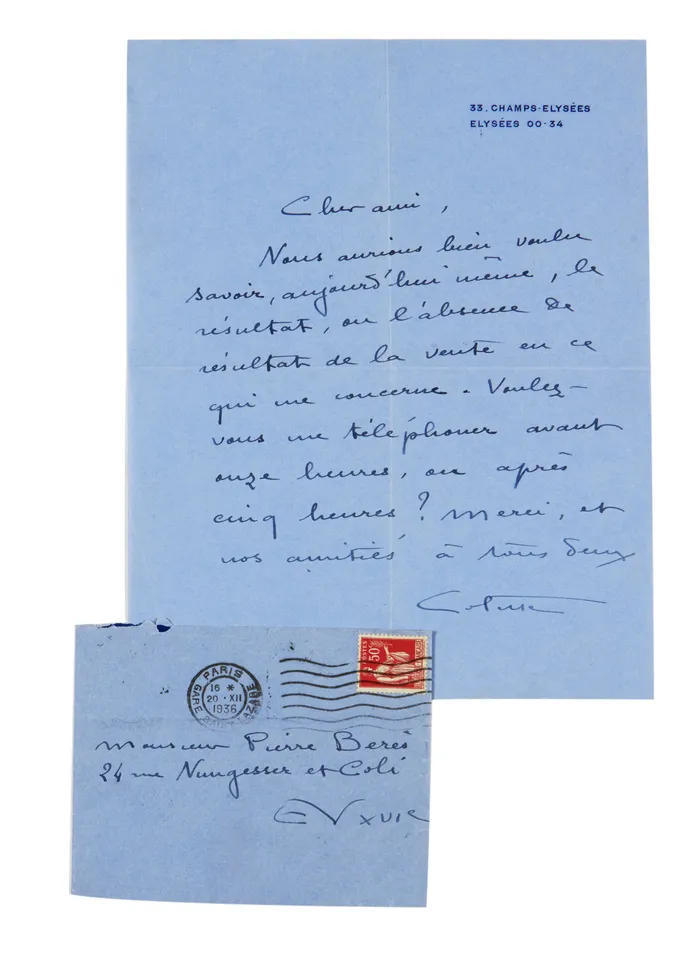 33. CHAMPS-ELYSÉES
ELYSÉES 00-34
Cher ami,
Nous aurions bien voulu
savoir, aujourd'hui même, le
résultat, ou l'absence de
résultat de la vente en ce
qui me concerne. Voulez-
vous me téléphoner avant
onze heures, ou après
cinq heures? Merci, et
nos amitiés à tous deux
Colette
PARIS
16 *
20 · XII
1936
GARE SAINT-LAZARE
50c
POSTES
Monsieur Pierre Berès
24 rue Nungesser et Coli
EV XVIe